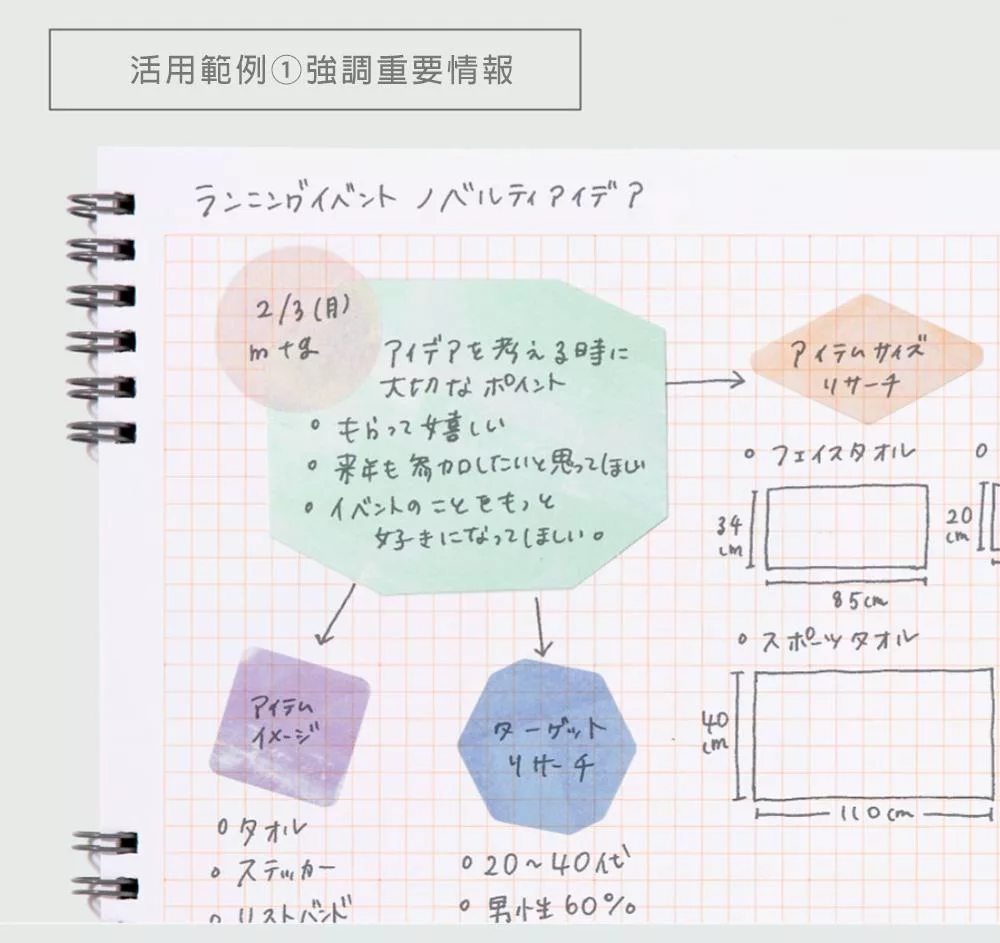 活用範例①強調重要情報
ランニングイベント ノベルティアイデア
2/3(月)
mtg
アイデアを考える時に
大切なポイント
○ もらって嬉しい
○ 来年も参加したいと思ってほしい
○ イベントのことをもっと
好きになってほしい。
アイテムサイズ
リサーチ
○ フェイスタオル
○
34
cm
85cm
20
cm
○ スポーツタオル
40
cm
110cm
アイテム
イメージ
○ タオル
○ ステッカー
○ リストバンド
ターゲット
リサーチ
○ 20～40代
○ 男性60%